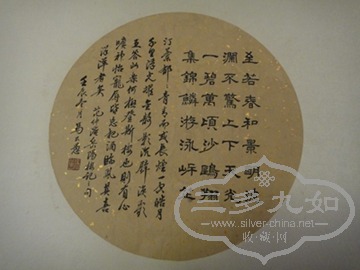 至若春和景明波
瀾不驚上下天光
一碧萬頃沙鷗翔
集錦鱗游泳岸芷
汀蘭郁郁青青而或長煙一空皓月
千里浮光躍金靜影沉璧漁歌
互答此樂何極登斯樓也則有心
曠神怡寵辱皆忘把酒臨風其喜
洋洋者矣 范仲淹岳陽樓記之句
壬辰冬月
三多九如
www.silver-china.net
收·藏·网